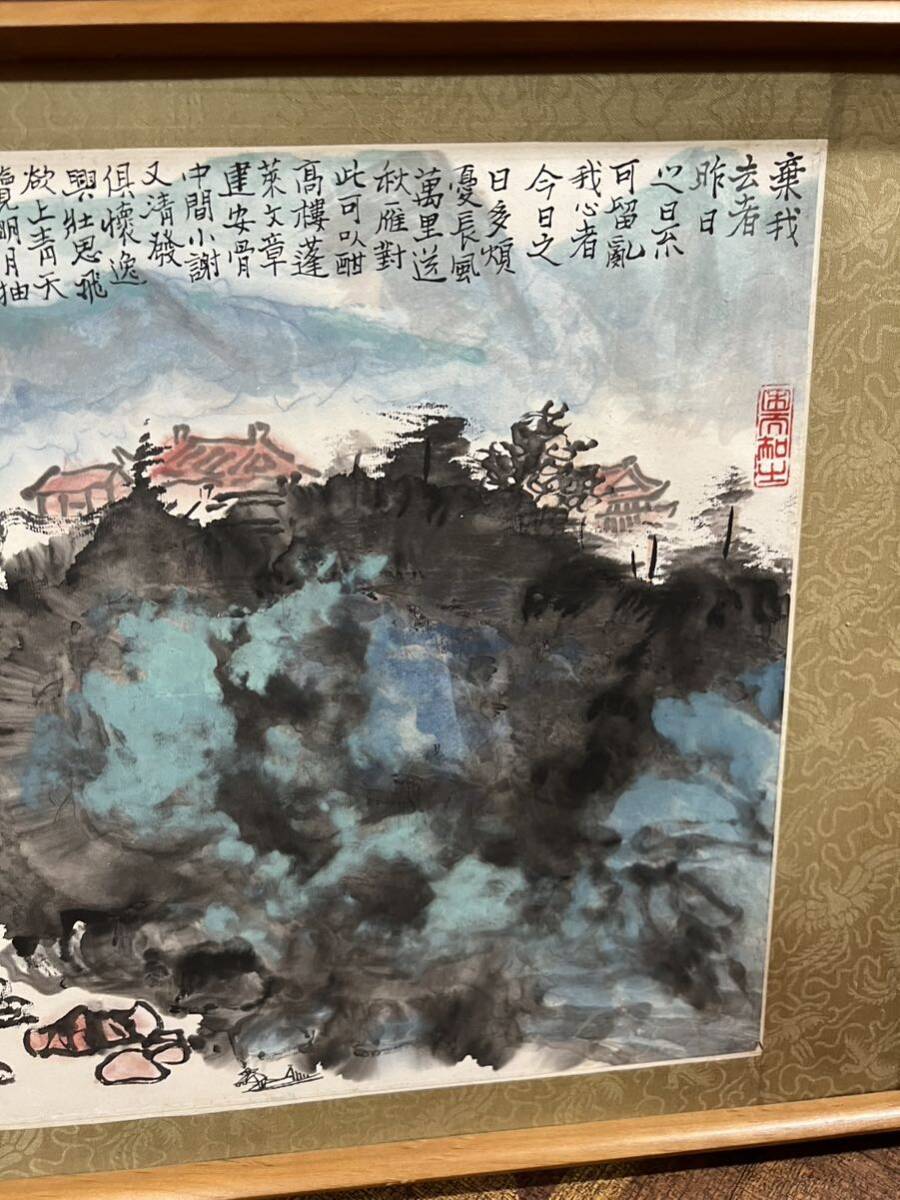 棄我
去者
昨日
之日不
可留亂
我心者
今日之
日多煩
憂長風
萬里送
秋雁對
此可以酣
高樓蓬
萊文章
建安骨
中間小謝
又清發
俱懷逸
興壯思飛
欲上青天
覽明月抽